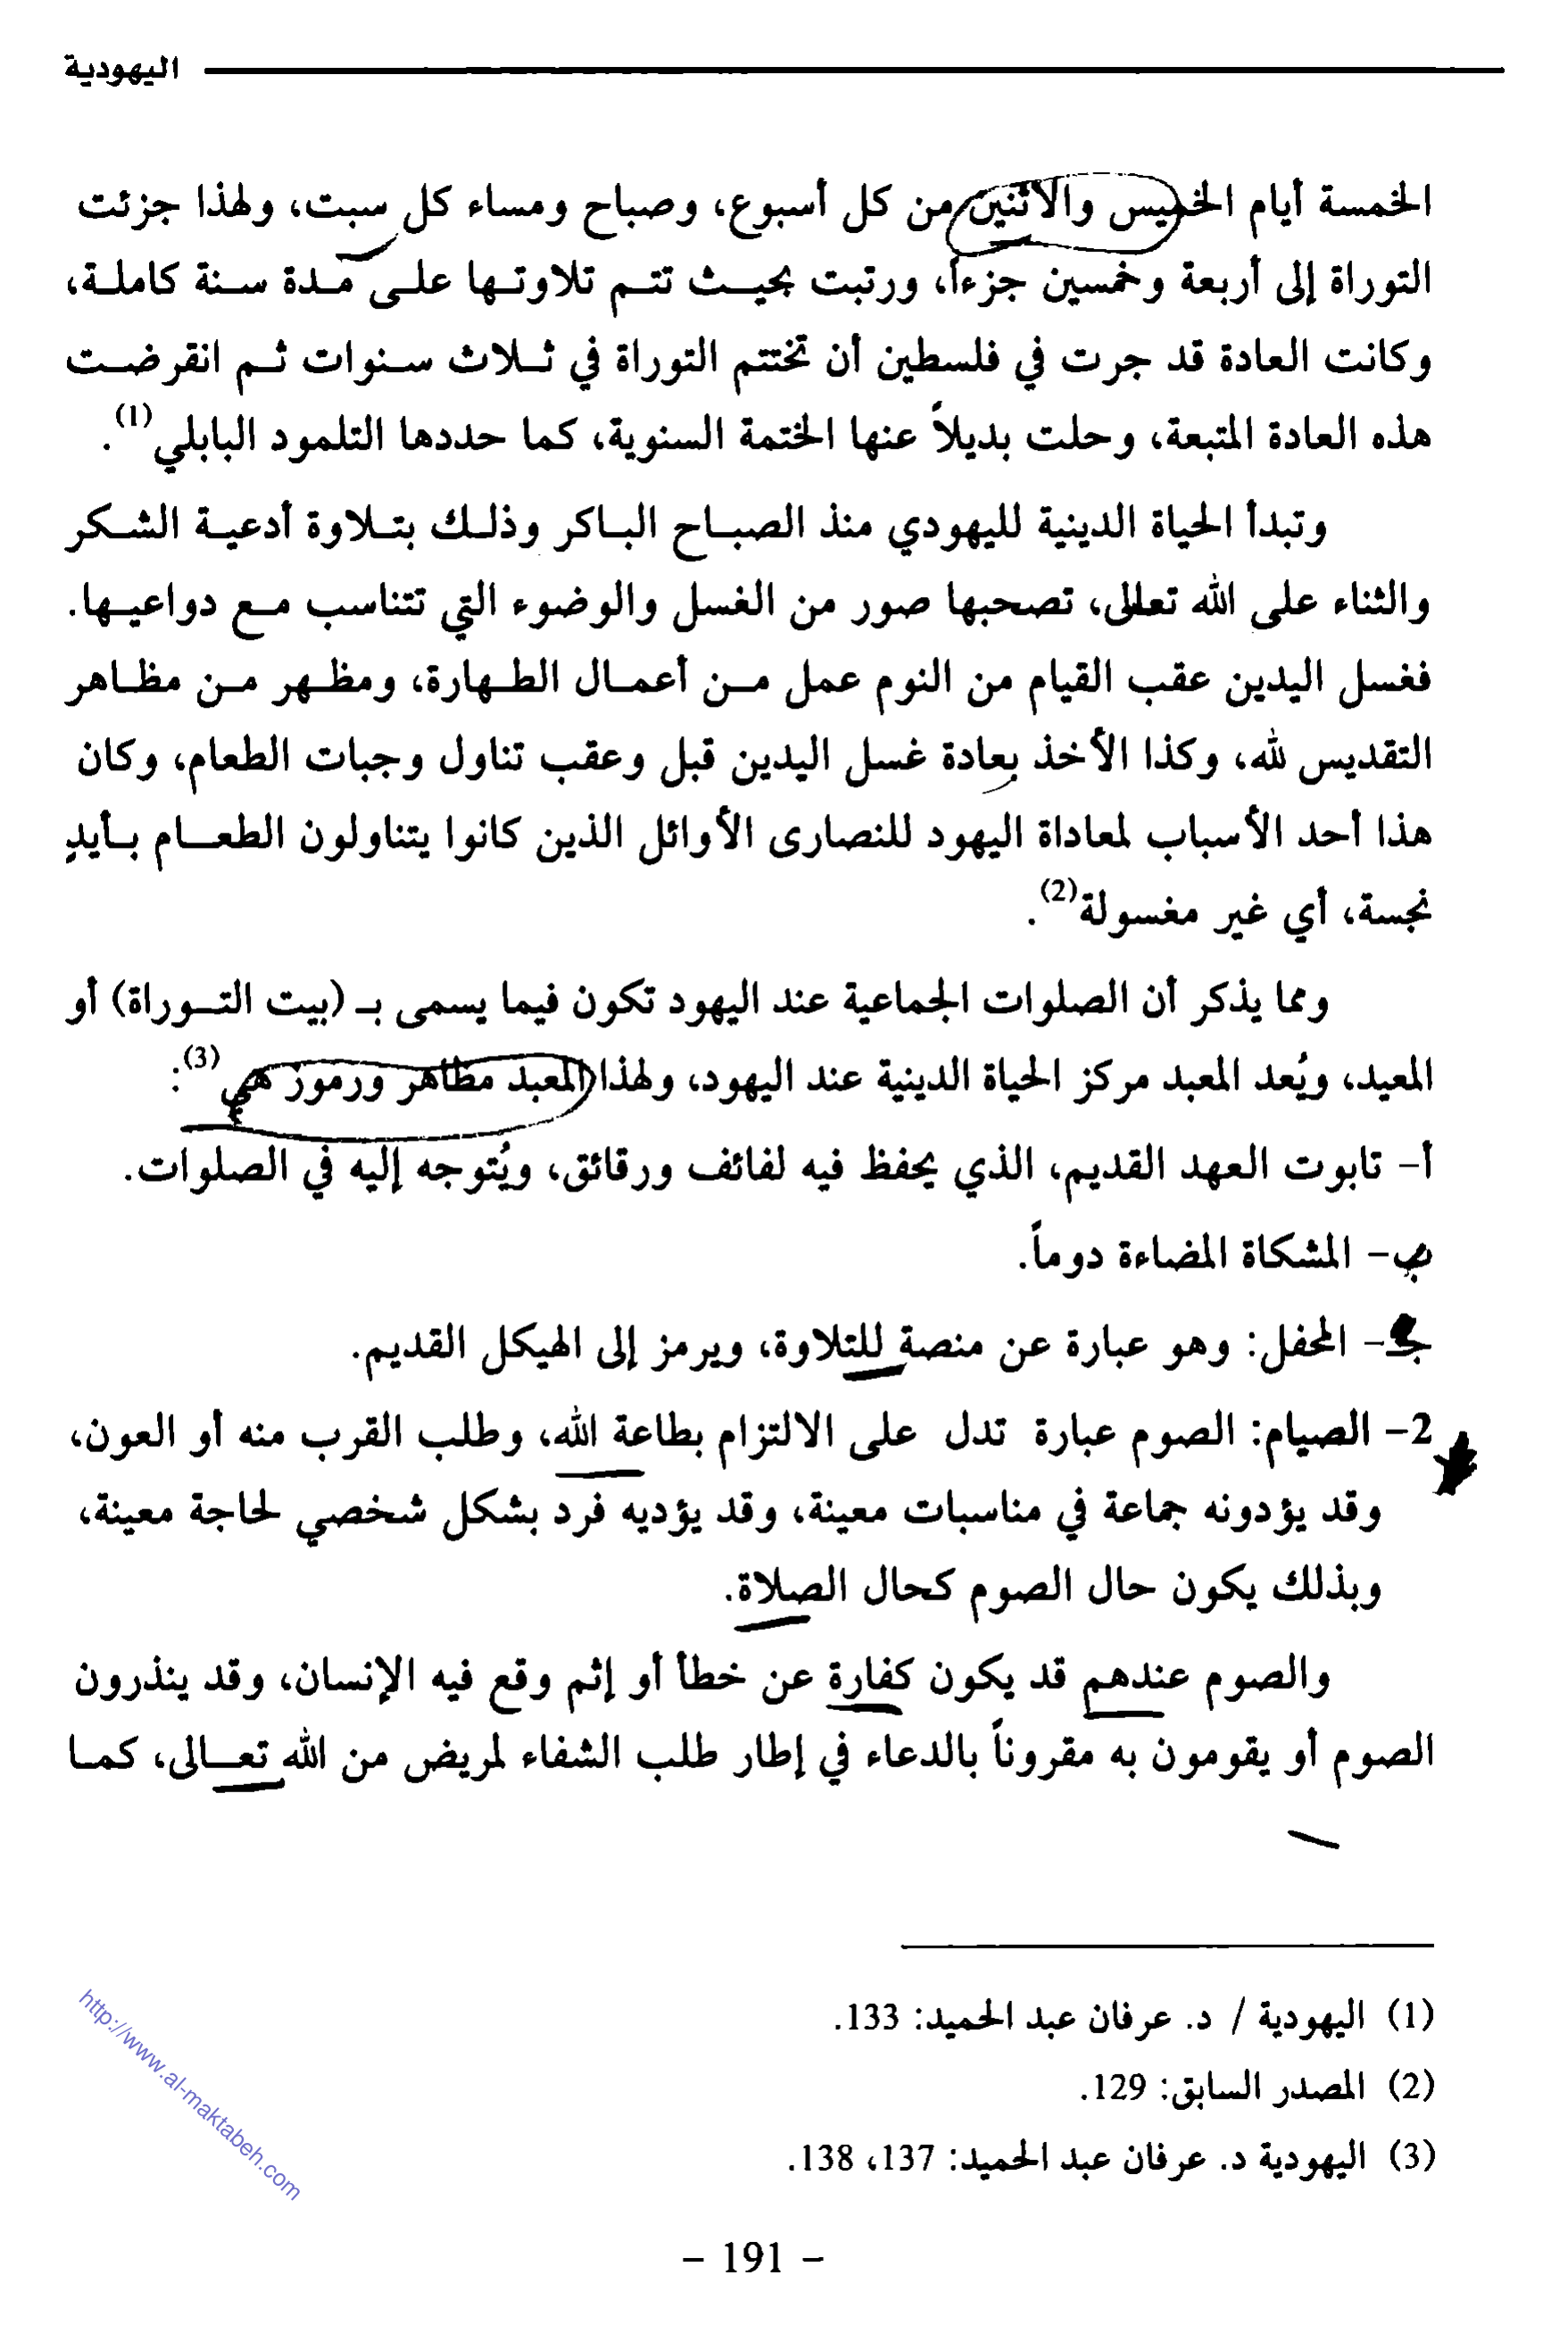 اليهودية
الخمسة أيام الخميس والاثنين من كل أسبوع، وصباح ومساء كل سبت، ولهذا جزئت
التوراة إلى أربعة وخمسين جزءاً، ورتبت بحيث تتم تلاوتها على مدة سنة كاملة،
وكانت العادة قد جرت في فلسطين أن تختتم التوراة في ثلاث سنوات ثم انقرضت
هذه العادة المتبعة، وحلت بديلاً عنها الختمة السنوية، كما حددها التلمود البابلي(1).
وتبدأ الحياة الدينية لليهودي منذ الصباح الباكر وذلك بتلاوة أدعية الشكر
والثناء على الله تعالى، تصحبها صور من الغسل والوضوء التي تتناسب مع دواعيها.
فغسل اليدين عقب القيام من النوم عمل من أعمال الطهارة، ومظهر من مظاهر
التقديس لله، وكذا الأخذ بعادة غسل اليدين قبل وعقب تناول وجبات الطعام، وكان
هذا أحد الأسباب لمعاداة اليهود للنصارى الأوائل الذين كانوا يتناولون الطعام بأيدٍ
نجسة، أي غير مغسولة(2).
ومما يذكر أن الصلوات الجماعية عند اليهود تكون فيما يسمى بـ (بيت التوراة) أو
المعبد، ويُعد المعبد مركز الحياة الدينية عند اليهود، ولهذا المعبد مظاهر ورموز هي(3):
أ- تابوت العهد القديم، الذي يحفظ فيه لفائف ورقائق، ويُتوجه إليه في الصلوات.
ب- المشكاة المضاءة دوماً.
جـ- المحفل: وهو عبارة عن منصة للتلاوة، ويرمز إلى الهيكل القديم.
2- الصيام: الصوم عبارة تدل على الالتزام بطاعة الله، وطلب القرب منه أو العون،
وقد يؤدونه جماعة في مناسبات معينة، وقد يؤديه فرد بشكل شخصي لحاجة معينة،
وبذلك يكون حال الصوم كحال الصلاة.
والصوم عندهم قد يكون كفارة عن خطأ أو إثم وقع فيه الإنسان، وقد ينذرون
الصوم أو يقومون به مقروناً بالدعاء في إطار طلب الشفاء لمريض من الله تعالى، كما
(1) اليهودية / د. عرفان عبد الحميد: 133.
(2) المصدر السابق: 129.
(3) اليهودية د. عرفان عبد الحميد: 137، 138.
http://www.al-maktabeh.com
- 191 -